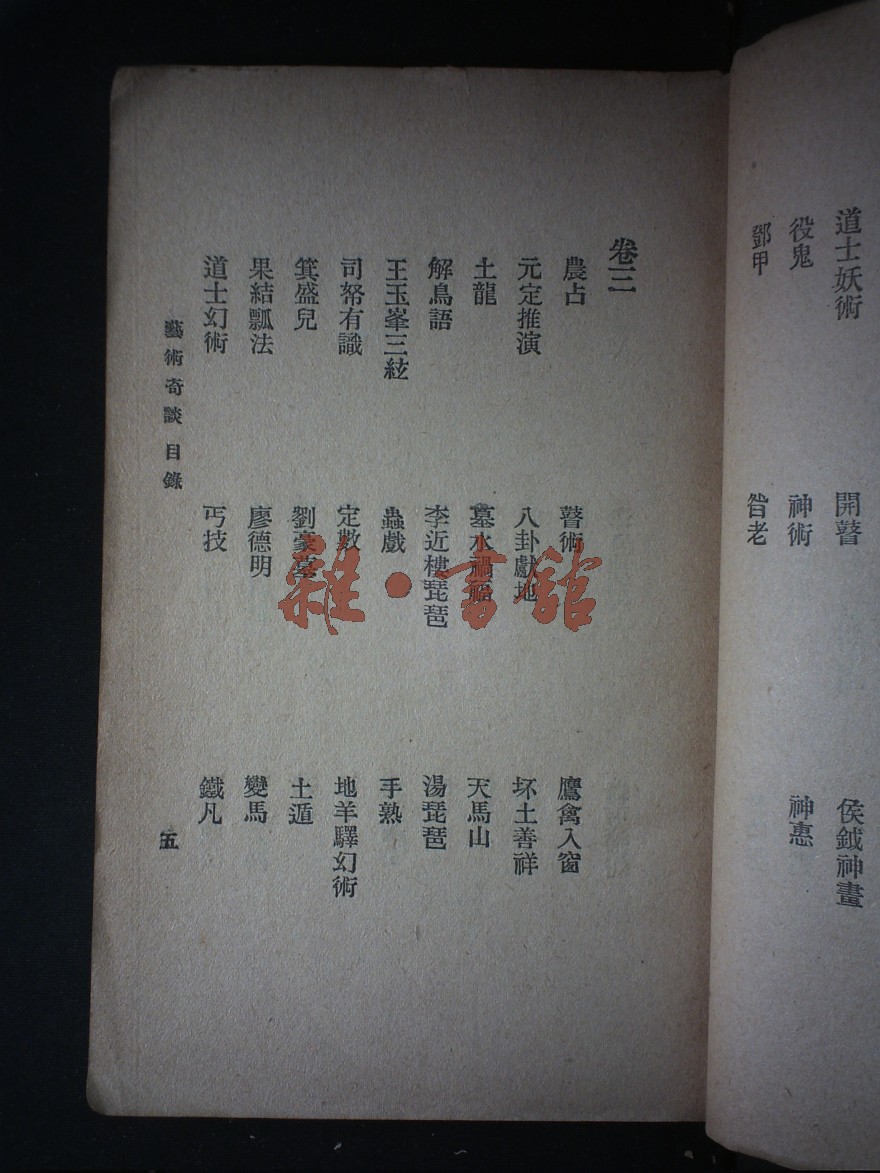 道士妖術 開瞽 侯鉞神畫
役鬼 神術 神惠
鄧甲 昝老
卷三
農占 瞽術 鷹禽入窗
元定推演 八卦獻地 坏土善祥
土龍 墓水禍福 天馬山
解鳥語 李近樓琵琶 湯琵琶
王玉峯三絃 蟲戲 手熟
司帑有識 定數 地羊驛幻術
箕盛兒 劉豪墓 土遁
果結瓢法 廖德明 變馬
道士幻術 丐技 鐵凡
藝術奇談 目錄 五
雜·書館